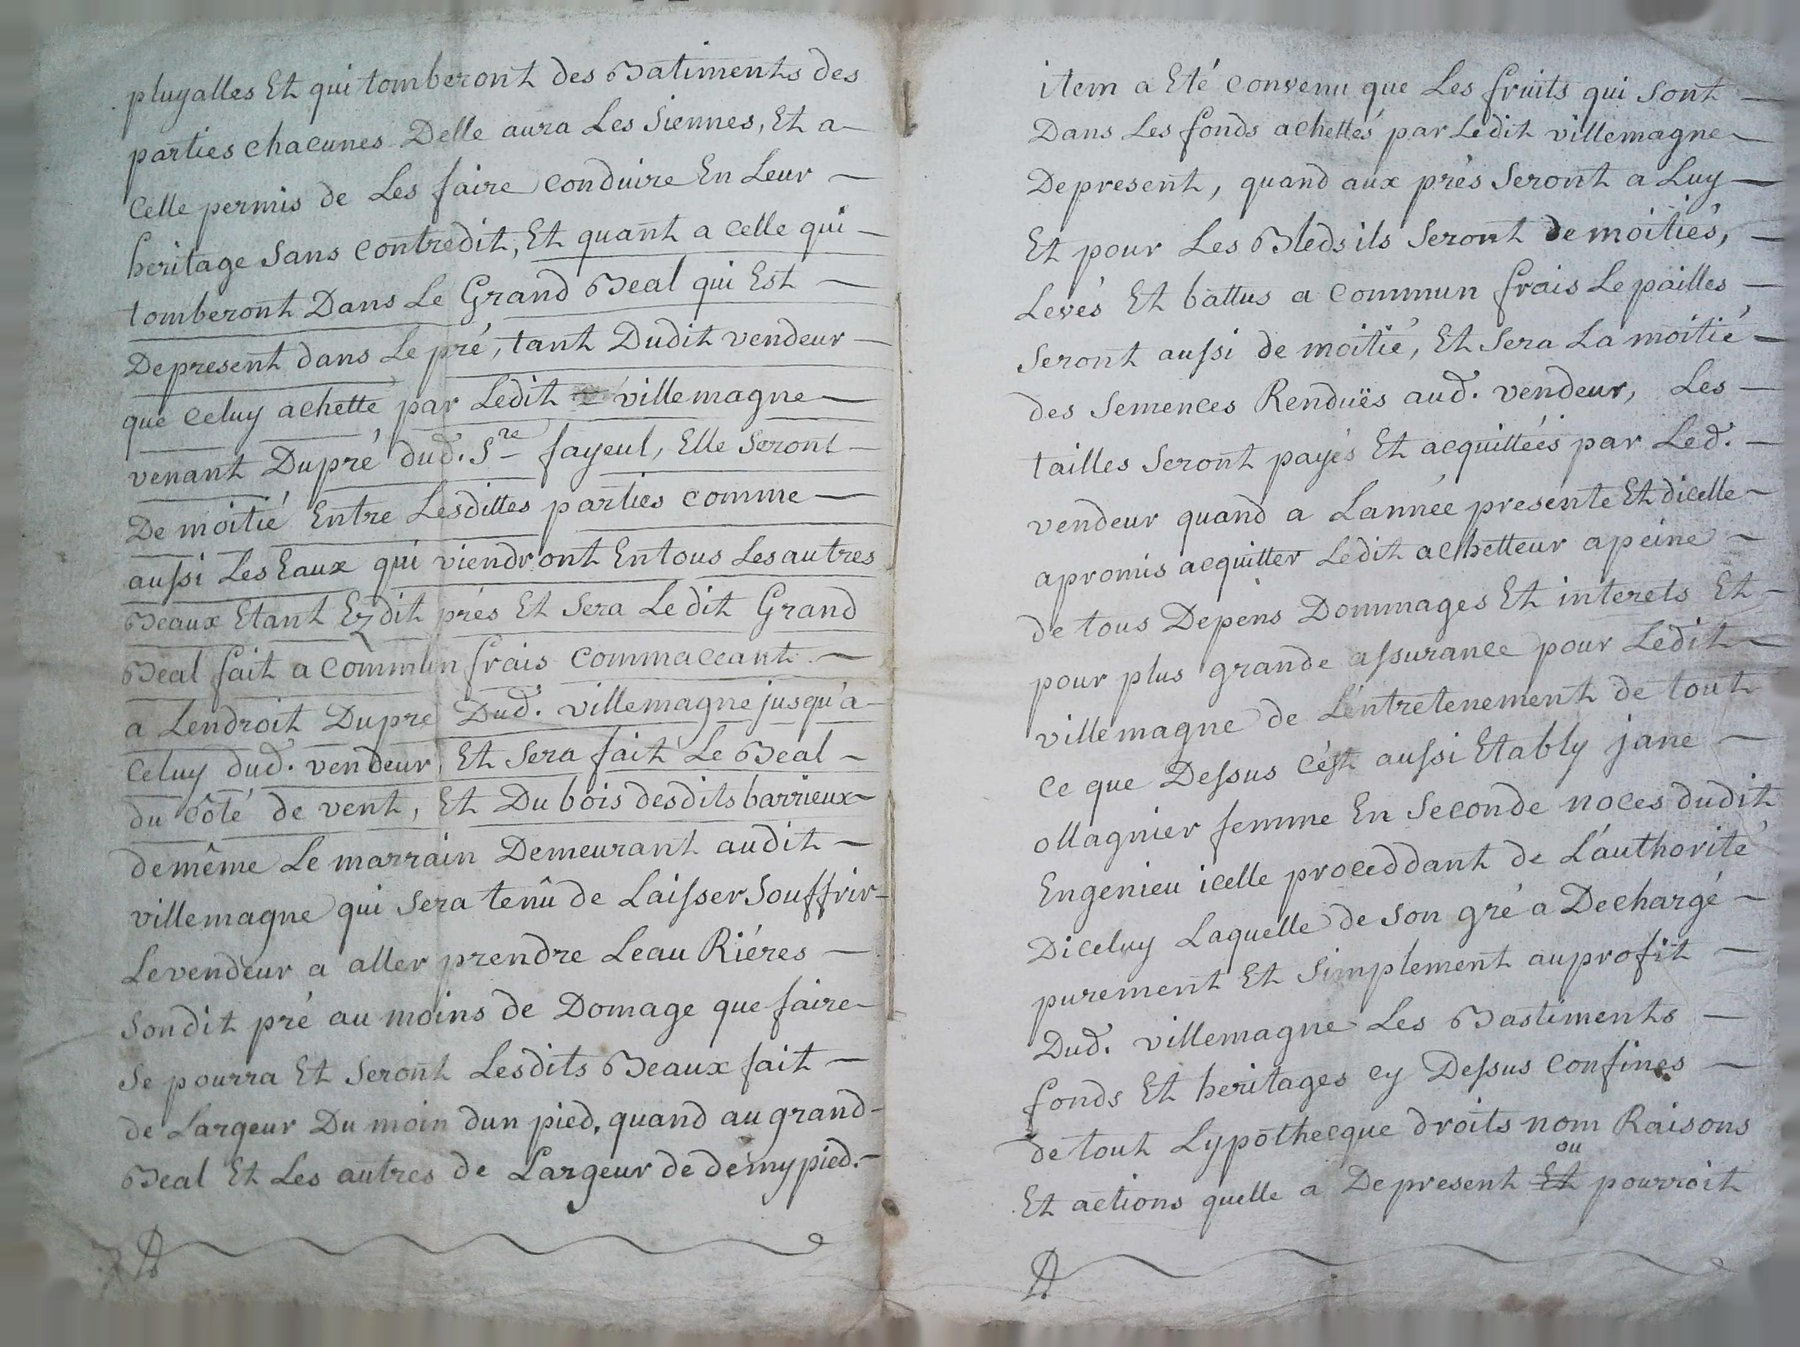 pluyalles Et qui tomberont des Batiments des
parties chacunes Delle aura Les Siennes, Et a
Celle permis de Les faire conduire En Leur
heritage Sans Contredit, Et quant a celle qui
tomberont Dans Le Grand Beal qui Est
Depresent dans Le pré, tant Dudit vendeur
que celuy achette par Ledit villemagne
venant Dupré dud. Sre fayeul, Elle Seront
De moitié Entre Lesdittes parties comme
aussi Les Eaux qui viendront En tous Les autres
Beaux Etant Ezdit prés Et Sera Ledit Grand
Beal fait a Commun frais commaceant
a Lendroit Dupre Dud. villemagne jusqu'a
Celuy dud. vendeur Et Sera fait Le Beal
du côté de vent, Et Du bois desdits barrieux
demême Le marrain Demeurant audit
villemagne qui Sera tenû de Laisser Souffrir
Levendeur a aller prendre Leau Riéres
Sondit pré au moins de Domage que faire
Se pourra Et Seront Lesdits Beaux fait
de Largeur Du moin dun pied, quand au grand
Beal Et Les autres de Largeur de demy pied.
item a Eté convenu que Les fruits qui Sont
Dans Les fonds achettés par Ledit villemagne
Depresent, quand aux prés Seront a Luy
Et pour Les Bleds ils Seront de moitiés,
Levés Et battus a Commun frais Le pailles
Seront aussi de moitié, Et Sera La moitié
des Semences Renduës aud. vendeur, Les
tailles Seront payés Et acquittées par Led.
vendeur quand a Lannée presente Et dicelle
apromis acquitter Ledit achetteur a peine
de tous Depens Dommages Et interets Et
pour plus grande assurance pour Ledit
villemagne de L'entretenement de tout
Ce que Dessus c'ést aussi Etably jane
ollagnier femme En Seconde noces dudit
Engenieu icelle proceddant de L'authorité
Diceluy Laquelle de Son gré a Dechargé
purement Et Simplement auprofit
Dud. villemagne Les Bastiments
fonds Et heritages cy Dessus confines
de tout Lypothecque droits nom Raisons
ou
Et actions quelle a Depresent Et pourroit